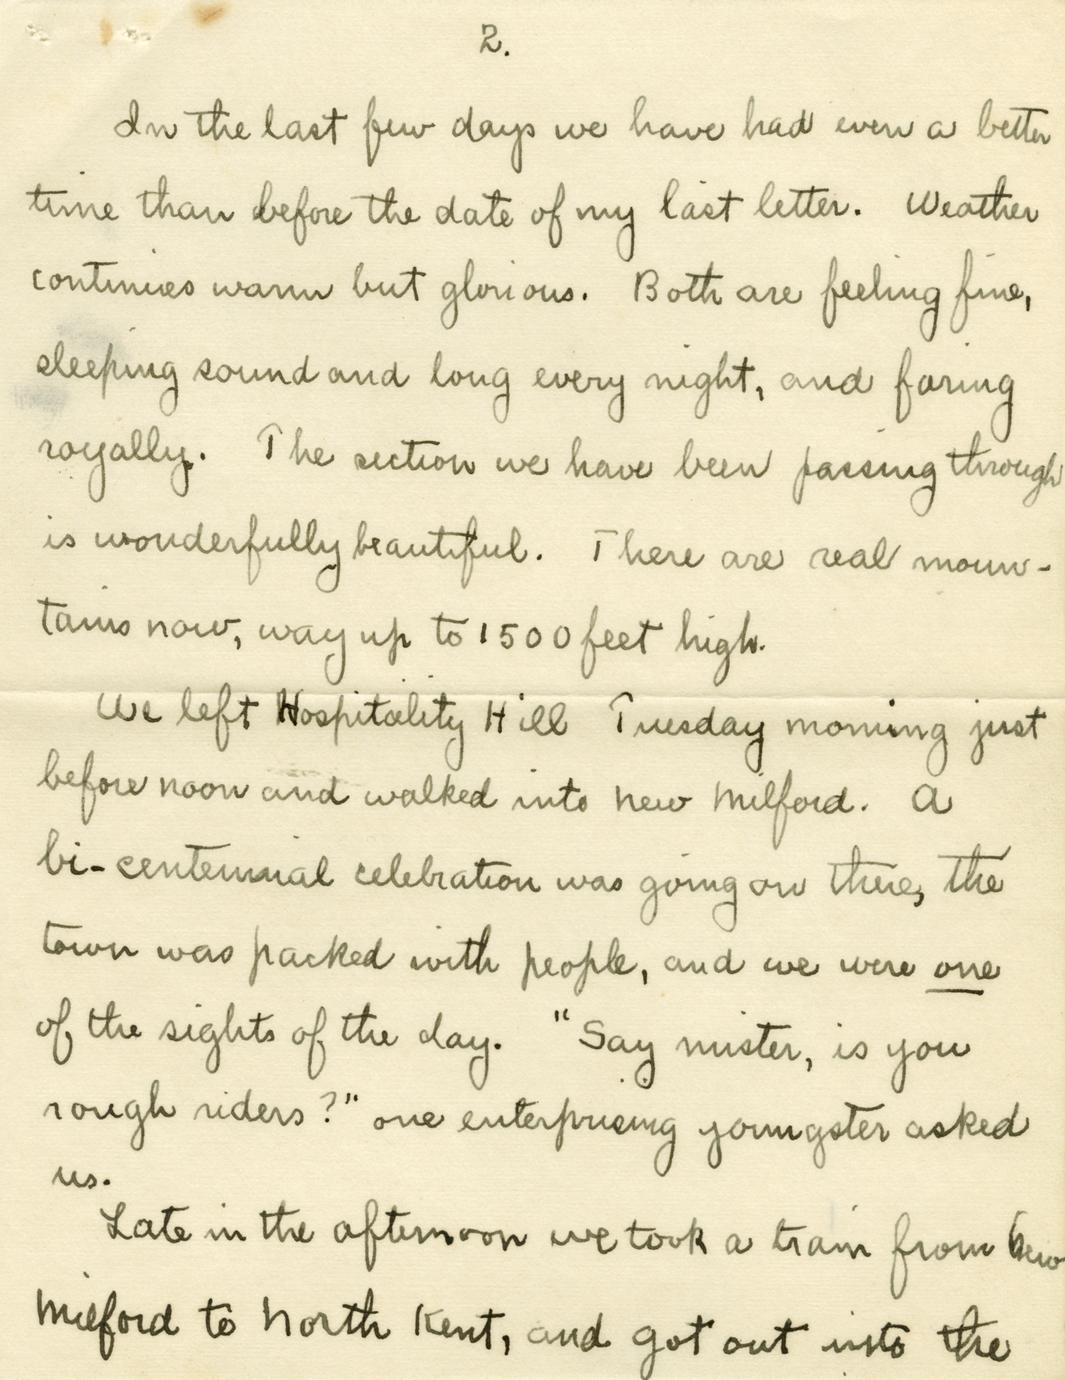 2.
In the last few days we have had even a better
time than before the date of my last letter. Weather
continues warm but glorious. Both are feeling fine,
sleeping sound and long every night, and faring
royally. The section we have been passing through
is wonderfully beautiful. There are real moun-
tains now, way up to 1500 feet high.
We left Hospitality Hill Tuesday morning just
before noon and walked into New Milford. A
bi-centennial celebration was going on there, the
town was packed with people, and we were one
of the sights of the day. "Say mister, is you
rough riders?" one enterprising youngster asked
us.
Late in the afternoon we took a train from New
Milford to North Kent, and got out into the